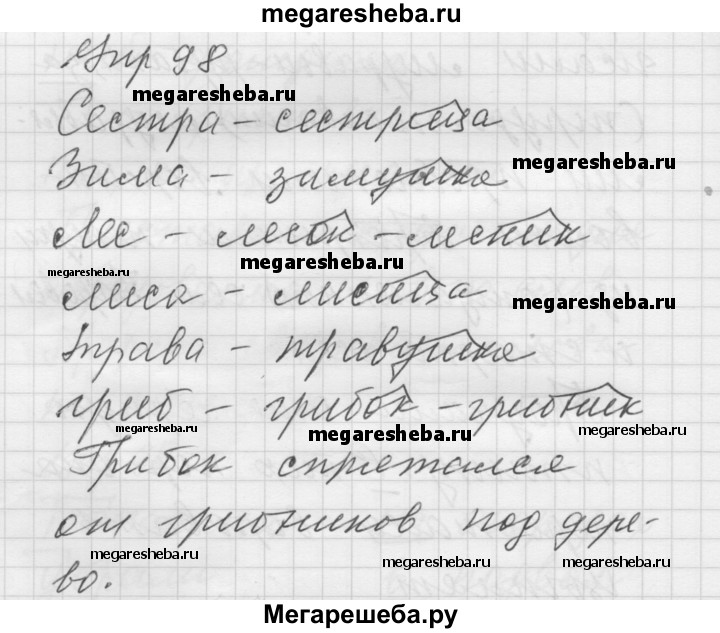 megaresheba.ru
Упр 98
megaresheba.ru
Сестра – сестрица
megaresheba.ru
Зима – зимушка
Лес – лесок – лесник
megaresheba.ru
megaresheba.ru
лиса – лисица
megaresheba.ru
трава – травушка
гриб – грибок – грибник
megaresheba.ru
megaresheba.ru
megaresheba.ru
Грибок спрятался
от грибников под дере-
megaresheba.ru
megaresheba.ru
megaresheba.ru
во.
Мегарешеба.ру